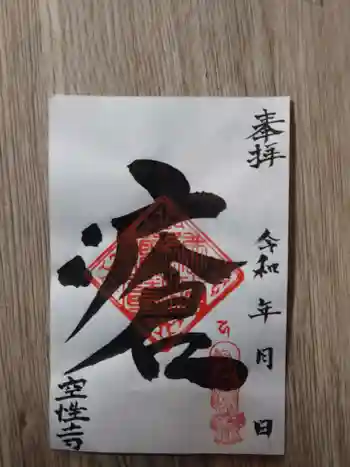 奉拝
令和 年 月 日
瘡
空性寺